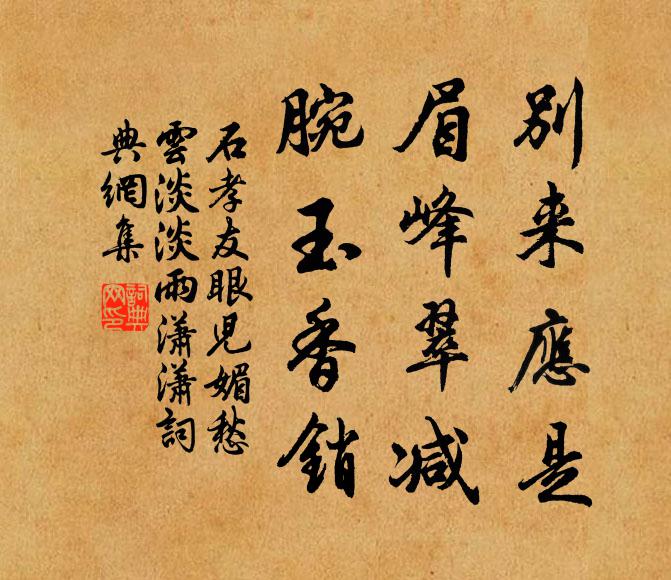 別来應是
眉峰翠減
腕玉香銷
石孝友眼児媚愁
雲淡淡雨瀟瀟詞
典網集
詞典
网印